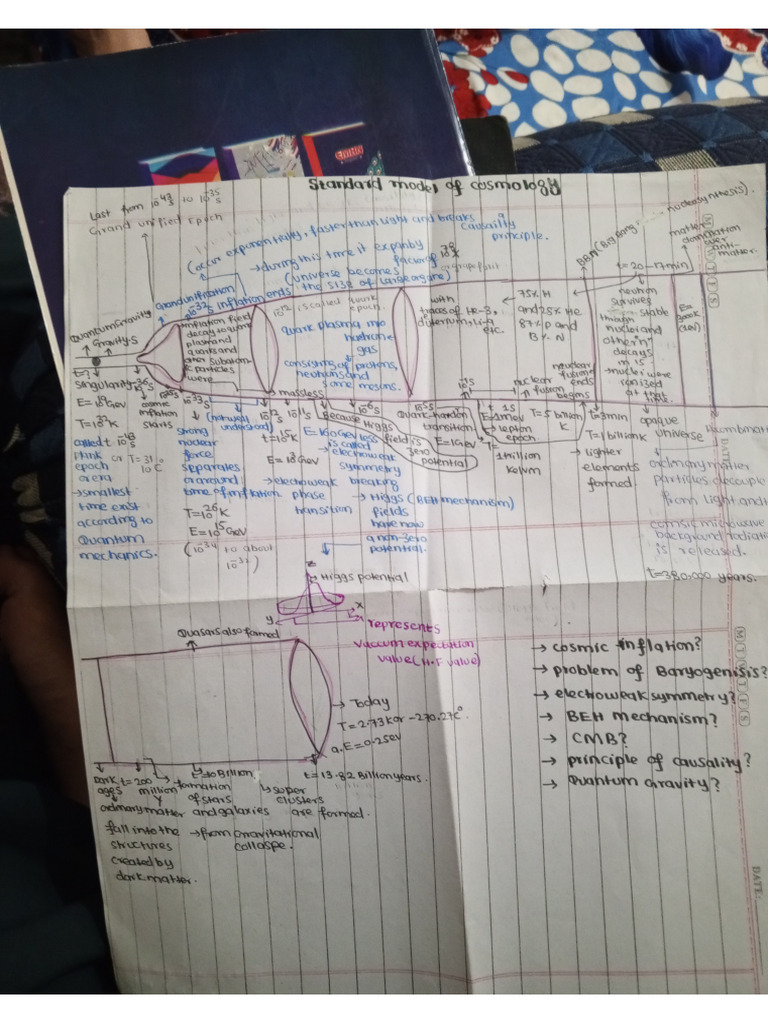 Standard model of cosmology
Last from 10^-43 s to 10^-35 s
Grand unified Epoch
(occur exponentially, faster than light and breaks causailty
principle.
→ during this time it expan by factor of 10^78 x
(universe becomes
the size of
Grandunification
10^-32 s inflation ends
BBN (Big bang nucleosynthesis).
matter
domination
over
anti-
matter.
t=20-17min
Quantum Gravity
Gravity s
inflation field
decay to quark
plasma and
quarks and
other
particles
were
10^-12 is called quark
epoch
Quark plasma into
hadrone
gas
consisting of protons,
neutrons and
some mesons.
with
traces of He-3,
deuterium, Li-9
etc.
75% H
and 25% He
87% p and
13% N
neuclear
fusion
ends
nuclear
fusion
begins
neutron
survives
stable
through
nuclei and
other in
decays
nuclei were
ionized
at
E=
300k
t=?
Singularity
10^-36 s
cosmic
inflation
starts
E=10^19 GeV
T=10^32 K
called t=10^-43 s
Plank or T=31
epoch 10 c
or era
→ smallest
time exist
according to
Quantum
mechanics.
10^-33 s
(not way
understood)
strong
nuclear
force
separates
or around
time of inflation
T=10^26 K
E=10^15 GeV
(10^-34 to about
10^-32)
massless
10^-12 s 10^-11 s
t=10^15 K
E=10^3 GeV
→ electroweak
phase
transition
Because Higgs
field is
zero
potential
10^-6 s
E=160 GeV less
is called
→ electroweak
symmetry
breaking
→ Higgs (BEH mechanism)
fields
have now
a non-zero
potential.
10^-5 s
Quark-hardon
transition
E=1GeV
1s
E=1mev
→ lepton
epoch
T=
1 trillion
kelvin
T=5 billion
K
t=3min
T=1 billion K
→ lighter
elements
formed.
opaque
universe
ordinary matter
particles decouple
from light and
comsic microwave
background radiation
is released.
t=380,000 years.
z
Higgs potential
x
y
represents
vaccum expectation
value (H.F value)
Quasars also formed
→ Today
T=2.73K or -270.27c°
a.E=0.25eV
Dark
ages
t=200
million
y
formation
of stars
and galaxies
t=10 Billion.
super
clusters
are formed.
t=13.82 Billion years.
ordinary matter
fall into the
structures
created by
dark matter.
→ from Gravitational
collaspe.
→ cosmic inflation?
→ problem of Baryogenisis?
→ electroweak symmetry?
→ BEH mechanism?
→ CMB?
→ principle of causality?
→ Quantum Gravity?
M T W T F S
M T W T F S
DATE:
DATE: